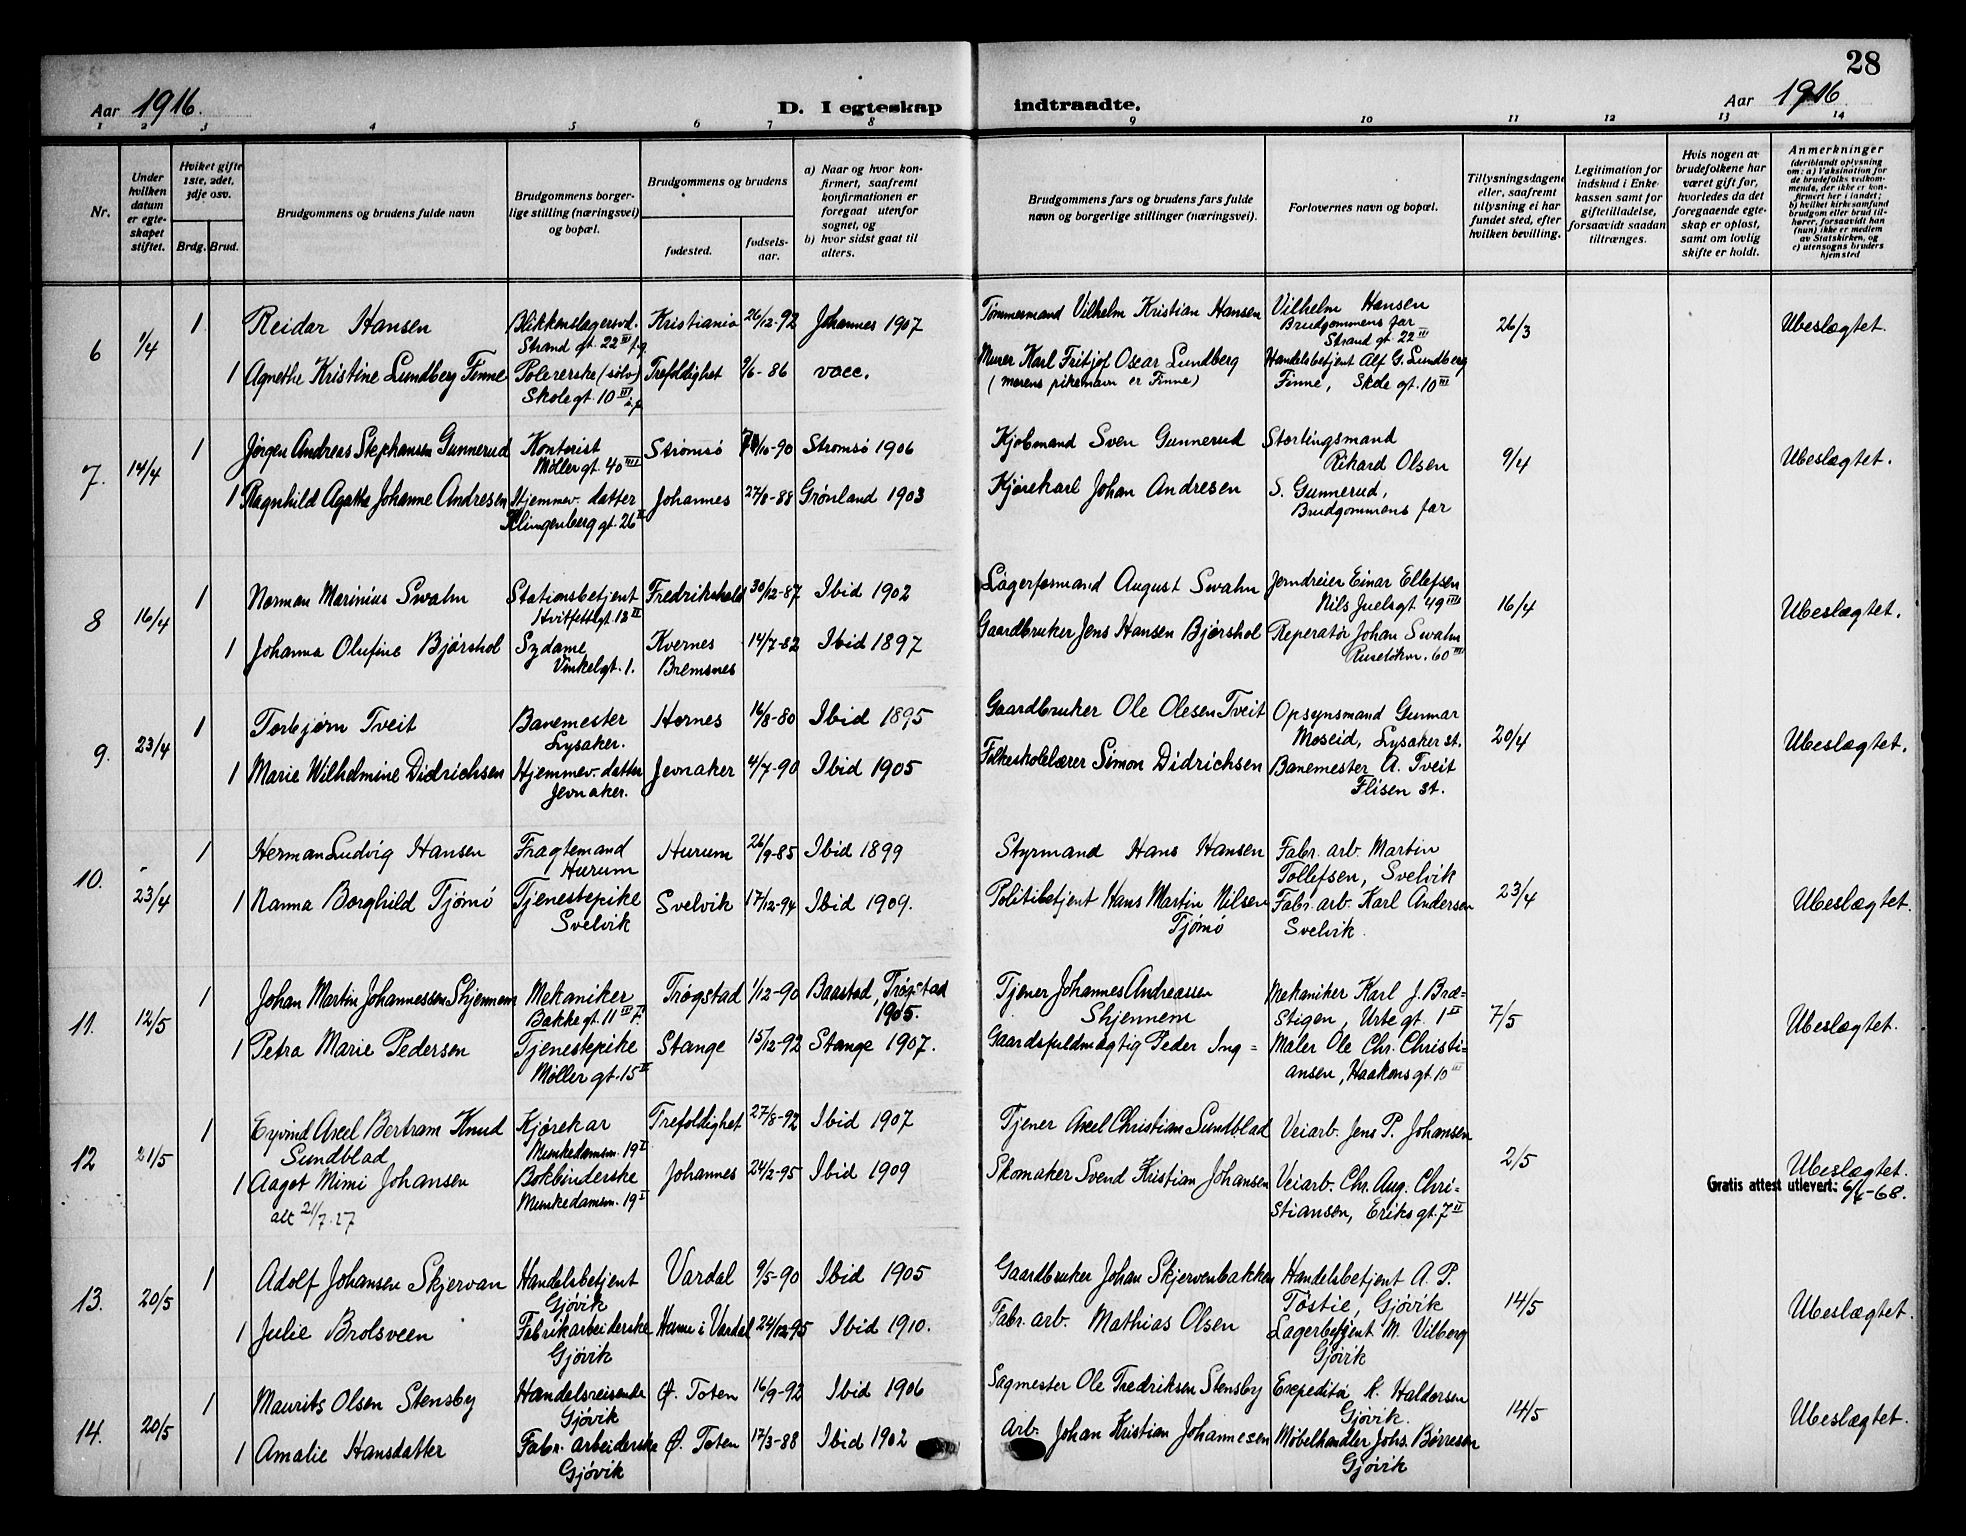 28
Aar 1916.
D. I egteskap indtraadte.
Aar 1916.
1 2 3 4 5 6 7 8 9 10 11 12 13 14
Nr.
Under hvilken datum er egteskapet stiftet.
Hvilket gifte 1ste, 2det, 3dje osv.
Brdg. Brud.
Brudgommens og brudens fulde navn
Brudgommens borgerlige stilling (næringsvei) og bopæl.
Brudgommens og brudens
fødested.
fødselsaar.
a) Naar og hvor konfirmert, saafremt konfirmationen er foregaat utenfor sognet, og
b) hvor sidst gaat til alters.
Brudgommens fars og brudens fars fulde navn og borgerlige stillinger (næringsvei).
Forlovernes navn og bopæl.
Tillysningsdagene eller, saafremt tillysning ei har fundet sted, efter hvilken bevilling.
Legitimation for indskud i Enkekassen samt for giftetilladelse, forsaavidt saadan tiltrænges.
Hvis nogen av brudefolkene har været gift før, hvorledes da det foregaaende egteskap er opløst, samt om lovlig skifte er holdt.
Anmerkninger
(deriblandt oplysning om: a) Vaksination for de brudefolks vedkommende, der ikke er konfirmert her i landet; b) hvilket kirkesamfund brudgom eller brud tilhører, forsaavidt han (hun) ikke er medlem av Statskirken, og c) utensogns bruders hjemsted
6 1/4 1 Reidar Hansen Blikkenslagersvd. Kristiania 26/12-92 Johannes 1907 Tømmermand Vilhelm Kristian Hansen Vilhelm Hansen 26/3 Ubeslægtet.
Strand gt. 22 III Brudgommens far
Strand gt. 22 III
1 Agnethe Kristine Lundberg Finne Polererske (sølv) Trefoldighet 9/6-86 vacc. Murer Karl Fritjof Oscar Lundberg Handelsbetjent Alf G. Lundberg
Skole gt. 10 III (morens pikenavn er Finne) Finne, Skole gt. 10 III
7. 14/4 1 Jørgen Andreas Stephansen Gunnerud Kontorist Strømsø /10-90 Strømsø 1906 Kjøbmand Sven Gunnerud Stortingsmand 9/4 Ubeslægtet.
Møller gt. 40 III Rikard Olsen
1 Ragnhild Agathe Johanne Andresen Hjemmev. datter Johannes 27/8-88 Grønland 1903 Kjørekarl Johan Andresen S. Gunnerud,
Klingenberg gt. 26 II Brudgommens far
8 16/4 1 Norman Marinius Swahn Stationsbetjent Fredrikshald 30/12-87 Ibid 1902 Lagerformand August Swahn Jerndreier Einar Ellefsen 16/4 Ubeslægtet.
Hvitfeltsgt. 13 II Nils Juelsgt 49 III
1 Johanna Olufine Bjørshol Sydame Kvernes 14/7-82 Ibid 1897 Gaardbruker Jens Hansen Bjørshol Reperatør Johan Swahn
Vinkelgt. 1. Bremsnes Ruseløkv. 60 III
9. 23/4 1 Torbjørn Tveit Banemester Hornes 16/8-80 Ibid 1895 Gaardbruker Ole Olesen Tveit Opsynsmand Gunnar 20/4 Ubeslægtet.
Lysaker. Moseid, Lysaker st.
1 Marie Wilhelmine Didrichsen Hjemmev. datter Jevnaker 4/7-90 Ibid 1905 Folkeskolelærer Simon Didrichsen Banemester A. Tveit
Jevnaker. Flisen st.
10. 23/4 1 Herman Ludvig Hansen Fragtemand Hurum 26/9-85 Ibid 1899 Styrmand Hans Hansen Fabr. arb. Martin 23/4 Ubeslægtet.
Hurum Tollefsen, Svelvik
1 Nanna Borghild Tjømø Tjenestepike Svelvik 17/12-94 Ibid 1909. Politibetjent Hans Martin Nilsen Fabr. arb. Karl Andersen
Svelvik Tjømø Svelvik.
11. 12/5 1 Johan Martin Johannessen Skjennem Mekaniker Trøgstad 1/12-90 Baastad, Trøgstad Tjener Johannes Andreassen Mekaniker Karl J. Bræ= 7/5 Ubeslægtet.
Bakke gt. 11 III 1905. Skjennem Stigen, Urte gt. 1 II
1 Petra Marie Pedersen Tjenestepike Stange 15/12-92 Stange 1907. Gaardsfuldmægtig Peder Ing= Maler Ole Chr. Christi=
Møller gt. 15 II ansen, Haakons gt. 10 III
12 21/5 1 Eyvind Axel Bertram Knud Kjørekar Trefoldighet 27/8-92 Ibid 1907 Tjener Axel Christian Sundblad Veiarb. Jens P. Johansen 2/5 Ubeslægtet.
Sundblad Munkedamsm. 19 I
1 Aagot Mimi Johansen Bokbinderske Johannes 24/2-95 Ibid 1909 Skomaker Svend Kristian Johansen Veiarb. Chr. Aug. Chri= Gratis attest utlevert: 6/6-68.
att 21/7.27 Munkedamsm. 19 I stiansen, Eriks gt. 7 II
13. 20/5 1 Adolf Johansen Skjervan Handelsbetjent Vardal 9/5-90 Ibid 1905 Gaardbruker Johan Skjervenbakken Handelsbetjent A. P. 14/5 Ubeslægtet.
Gjøvik Tøstie, Gjøvik
1 Julie Brolsveen Fabrikarbeiderske i Vardal 24/12-95 Ibid 1910. Fabr. arb. Mathias Olsen Lagerbetjent M. Vilberg
Gjøvik Gjøvik
14. 20/5 1 Maurits Olsen Stensby Handelsreisende Ø. Toten 16/9-92 Ibid 1906 Sagmester Ole Fredriksen Stensby Expeditør K. Haldorsen 14/5 Ubeslægtet.
Gjøvik Gjøvik.
1 Amalie Hansdatter Fabr. arbeiderske Ø. Toten 17/3-88 Ibid 1902 Arb. Johan Kristian Johannesen Møbelhandler Johs. Børresen
Gjøvik Gjøvik